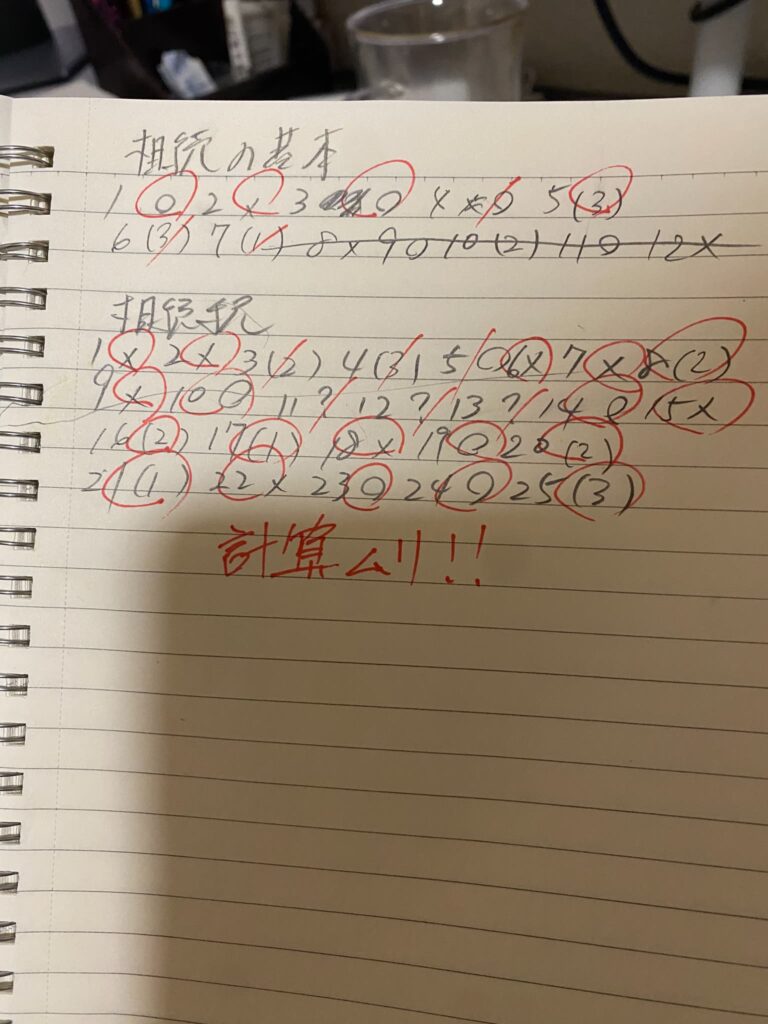 相続の基本
1 ○ 2 × 3 ○ 4 × ○ 5 (3)
6 (3) 7 (1) 8 × 9 ○ 10 (2) 11 ○ 12 ×
相続税
1 × 2 × 3 (2) 4 (3) 5 ○ 6 × 7 × 8 (2)
9 × 10 ○ 11 ? 12 ? 13 ? 14 ○ 15 ×
16 (2) 17 (1) 18 × 19 ○ 20 (2)
21 (1) 22 × 23 ○ 24 ○ 25 (3)
計算ムリ!!